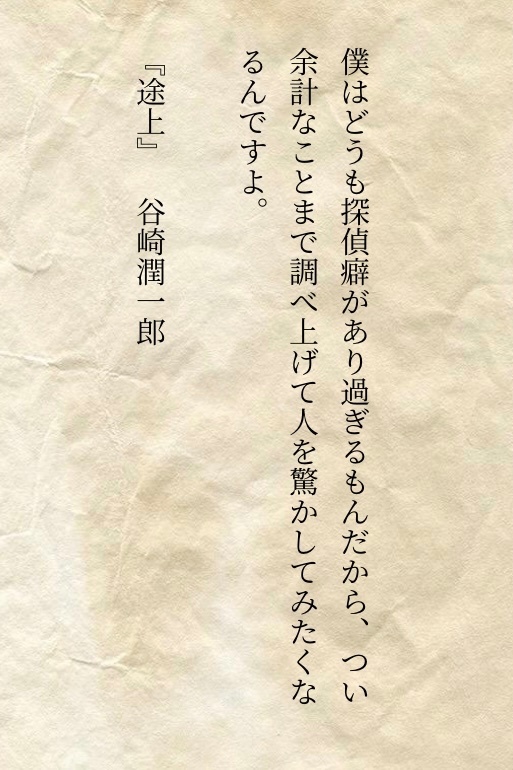 僕はどうも探偵癖があり過ぎるもんだから、つい
余計なことまで調べ上げて人を驚かしてみたくな
るんですよ。
『途上』　谷崎潤一郎